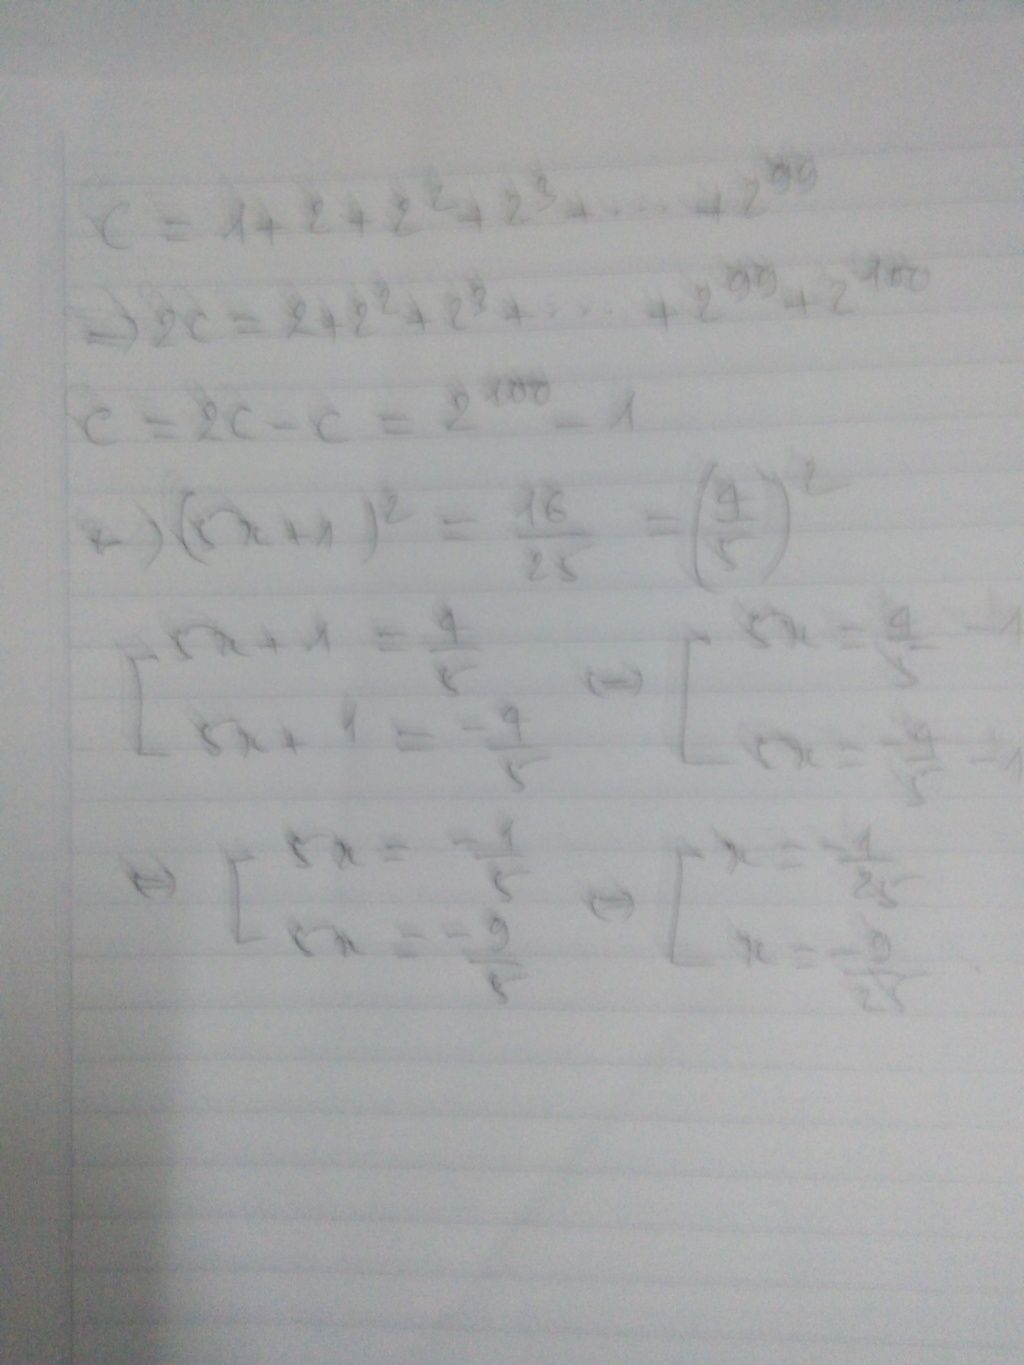 C = 1 + 2 + 2² + 2³ + ... + 2⁹⁹
=> 2C = 2 + 2² + 2³ + ... + 2⁹⁹ + 2¹⁰⁰
C = 2C - C = 2¹⁰⁰ - 1
(5x + 1)² = 16/25 = (4/5)²
[ 5x + 1 = 4/5 ; 5x + 1 = -4/5 <=> [ 5x = 4/5 - 1 ; 5x = -4/5 - 1
<=> [ 5x = -1/5 ; 5x = -9/5 <=> [ x = -1/25 ; x = -9/25